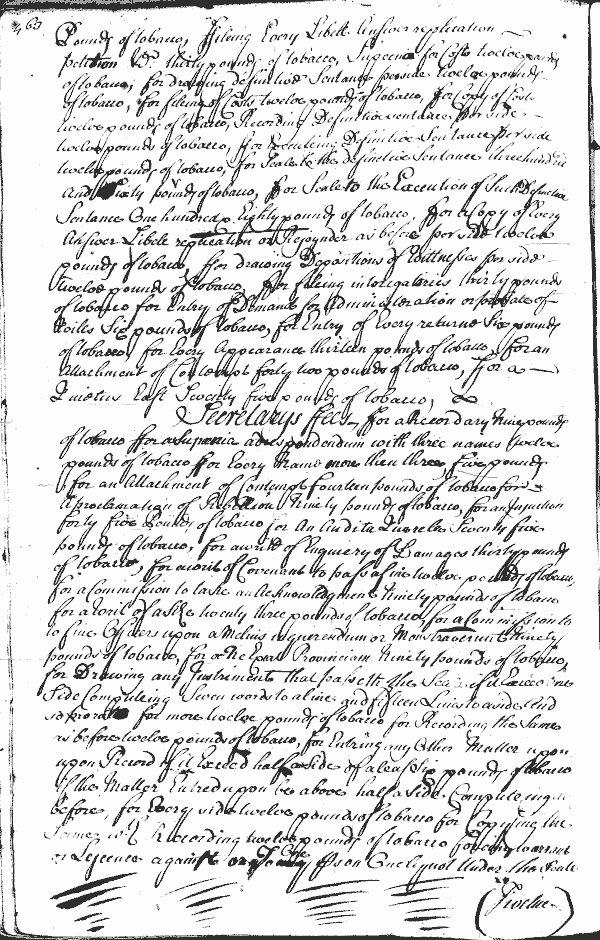 469
Pounds of tobacco, ffileing Every Libell Answer replication
petition &c. thirty pounds of tobacco, Supena for Costs twelve pounds
of tobacco, for drawing definitive Sentance per side twelve pounds
of tobacco, for fileing of Costs twelve pounds of tobacco, for Copy of Costs
twelve pounds of tobacco, Recording Definitive sentance per side
twelve pounds of tobacco, for executing Definitive Sentance per side
twelve pounds of tobacco, for Seale to the definitive Sentance three hundred
And Sixty pounds of tobacco, ffor Seale to the Execution of such Definitive
Sentance One hundred & Eighty pounds of tobacco, ffor a Copy of Every
Answer Libell replication or Rejoynder as before per side twelve
pounds of tobacco, ffor drawing Depositions of Wittnesses per side
twelve pounds of tobacco, for fileing interogatories thirty pounds
of tobacco for Entry of Demand for Administration or probate of
Wills Six pounds of tobacco, for Entry of Every returne Six pounds
of tobacco, for Every Appearance thirteen pounds of tobacco, ffor an
Attachment of Contempt forty two pounds of tobacco, ffor a
Quietus Est Seventy five pounds of tobacco,
Secretarys ffees, ffor a Recordary Nine pounds
of tobacco ffor a Supenia ad respondendum with three names twelve
pounds of tobacco ffor Every Name more then three five pounds
for an Attachment of Contempt fourteen pounds of tobacco for
A proclamation of Rebellion Ninety pounds of tobacco, for an Injunction
forty five pounds of tobacco for An Audita Querela Seventy five
pounds of tobacco, for a writ of Enquery of Damages thirty pounds
of tobacco, for a writ of Covenant to pass a fine twelve pounds of tobacco,
for a Commission to take an Acknowledgment ninety pounds of tobacco
for a writ of assize twenty three pounds of tobacco, for a Commission to
to five Ossiders upon a Melius inquerendum or Monstraverunt Ninety
pounds of tobacco, for a Ne Exeat Provinciam Ninety pounds of tobacco,
for Drawing any Instruments that passeth the Seale if it Exceed one
Side Computeing Seven words to a line and fifteen Lines to a side And
so prorato for more twelve pounds of tobacco for Recording the Same
as before twelve pounds of tobacco, for Entring any Other Matter upon
upon Record if it Exceed half a side of a leaf Six pounds of tobacco
if the Matter Entred upon be above half a side Computeing as
before, for Every side twelve pounds of tobacco for Coppying the
Same, Recording twelve pounds of tobacco for any warrant
or Lycence against or to any One pson One if not Under the Seale
Twelve